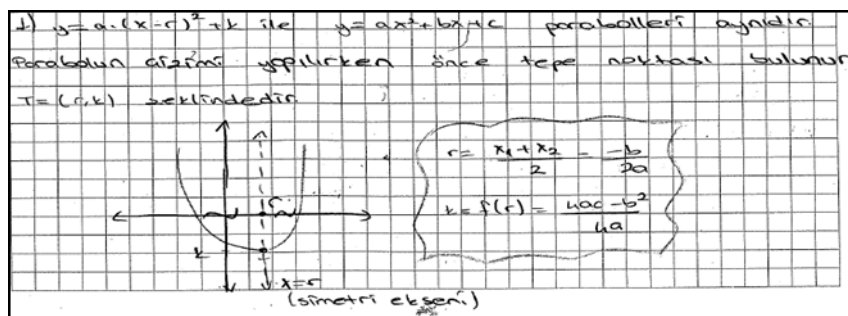 1) y=a.(x-r)²+k ile y=ax²+bx+c parabolleri aynıdır.
Parabolun çizimi yapılırken önce tepe noktası bulunur
T=(r,k) şeklindedir.
r = (x₁+x₂)/2 = -b/2a
k=f(r) = (4ac-b²)/4a
r
k
x=r
(simetri ekseni)